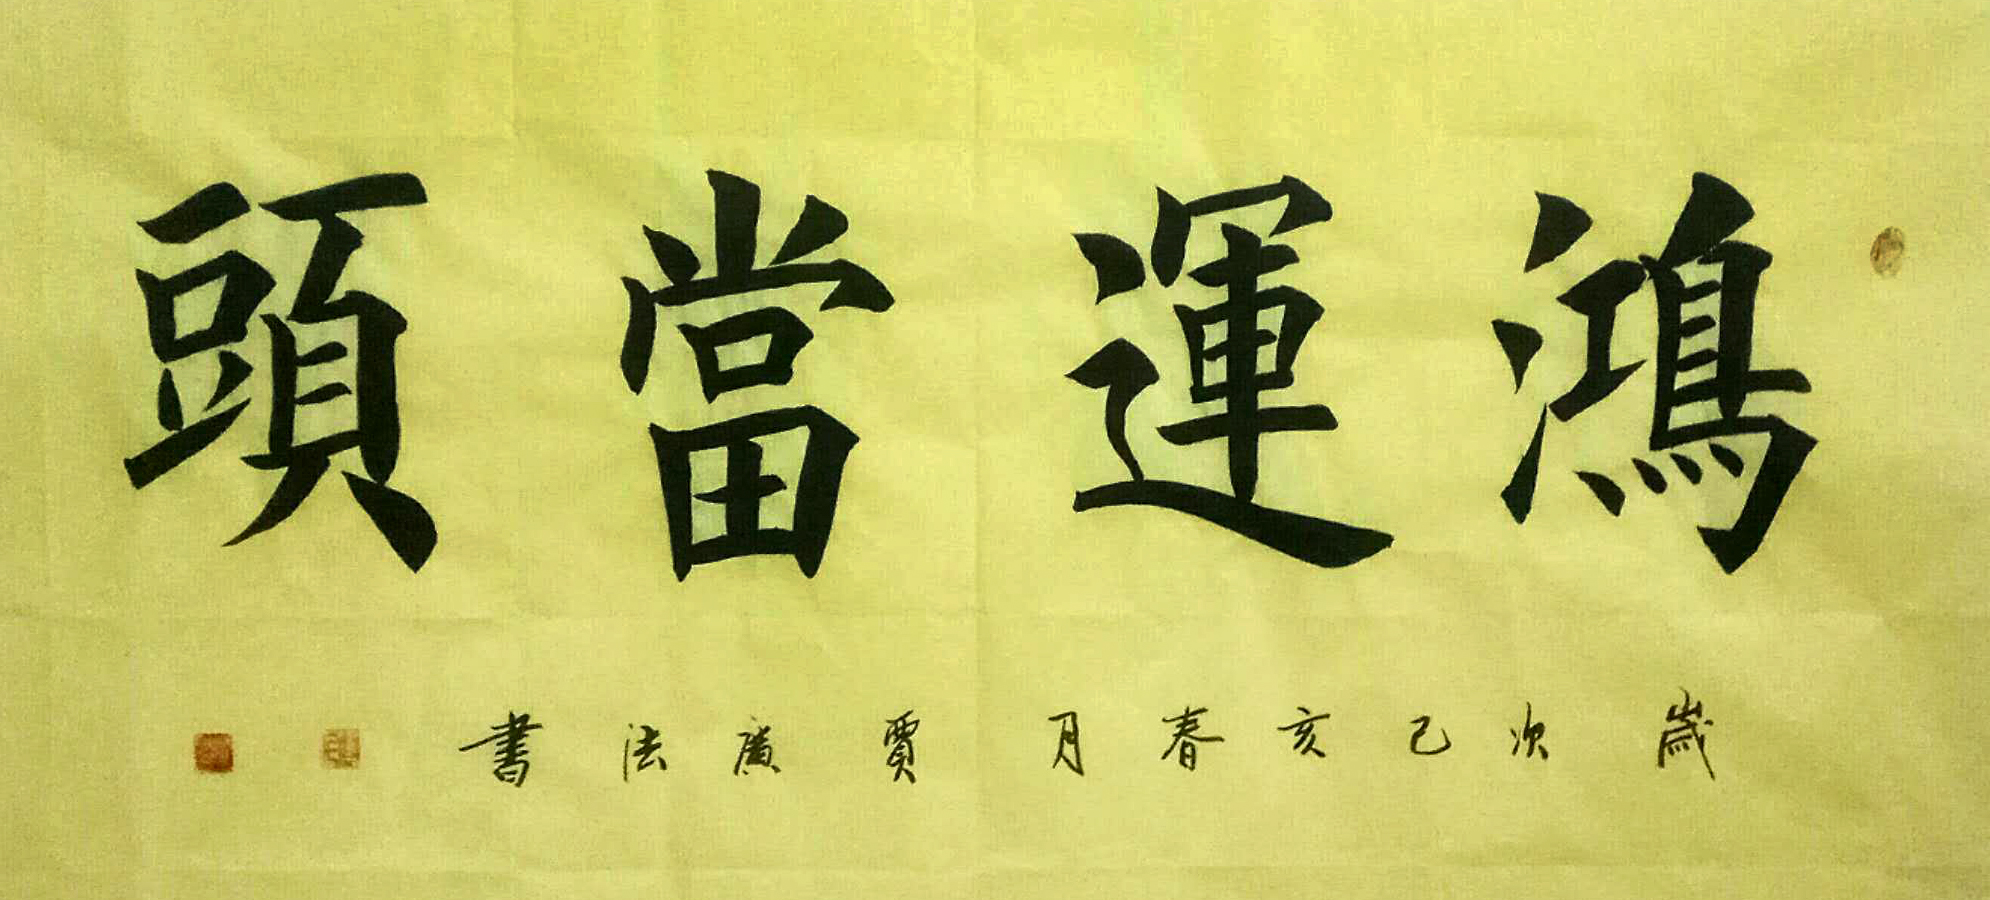 鴻運當頭
歲次己亥春月賈廣法書